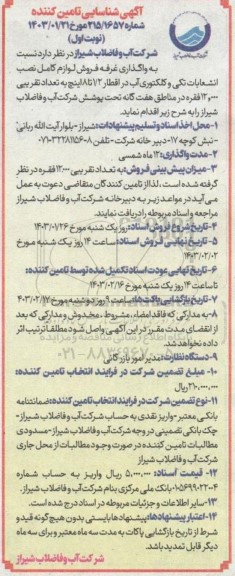 آگهی شناسایی تامین کننده
شماره ۲۱۵/۱۶۵۷ مورخ ۱۴۰۳/۰۱/۲۱
(نوبت اول)
شرکت آب و فاضلاب شیراز در نظر دارد نسبت
به واگذاری غرفه فروش لوازم کامل نصب
انشعابات تکی و کلکتوری آب در اقطار ۱/۲ تا ۸ اینچ به تعداد تقریبی
۱۲,۰۰۰ فقره در مناطق هفت گانه تحت پوشش شرکت آب و فاضلاب
شیراز را به شرح زیر اقدام نماید.
۱- محل اخذ اسناد و تسلیم پیشنهادات: شیراز - بلوار آیت الله ربانی-
نبش کوچه ۱۷- دبیر خانه شرکت - تلفن ۳۲۲۸۱۱۵۶۰۸-۰۷۱
۲- مدت واگذاری: ۱۲ ماه شمسی
۳- میزان پیش بینی فروش: به تعداد تقریبی ۱۲,۰۰۰ فقره در نظر
گرفته شده است. لذا از تامین کنندگان متقاضی دعوت به عمل
می آید در مواعد زیر به دبیرخانه شرکت آب و فاضلاب شیراز
مراجعه و اسناد مربوطه را دریافت نمایند.
۴- تاریخ شروع فروش اسناد: روز یک شنبه مورخ ۱۴۰۳/۰۱/۲۶
۵- تاریخ نهایی فروش اسناد: ساعت ۱۴ روز یک شنبه مورخ
۱۴۰۳/۰۲/۰۲
۶- تاریخ نهایی عودت اسناد تکمیل شده توسط تامین کننده:
تا ساعت ۱۴ روز یک شنبه مورخ ۱۴۰۳/۰۲/۱۶
۷- تاریخ بازگشایی پاکت ها: ساعت ۹ روز دوشنبه مورخ ۱۴۰۳/۰۲/۱۷
۸- به مدارکی که فاقد امضاء، مشروط، مخدوش و مدارکی که بعد
از انقضای مدت مقرر در این آگهی واصل شود مطلقا ترتیب اثر
داده نخواهد شد.
۹- دستگاه نظارت: مدیر امور بازرگانی
۱۰- مبلغ تضمین شرکت در فرایند انتخاب تامین کننده:
ریال
۱۱- نوع تضمین شرکت در فرایند انتخاب تامین کننده: ضمانتنامه
بانکی معتبر - واریز نقدی به حساب شرکت آب و فاضلاب شیراز -
چک بانکی تضمینی در وجه شرکت آب و فاضلاب شیراز - مسدودی
مطالبات تامین کننده در صورت وجود مطالبات از محل جاری
شرکت آب و فاضلاب شیراز
۱۲- قیمت اسناد: ۵,۰۰۰,۰۰۰ ریال واریز به حساب شماره
بانک ملی مرکزی بنام شرکت آب و فاضلاب شیراز.
۱۳- سایر اطلاعات و جزئیات مربوطه در اسناد درج شده است.
۱۴- اعتبار پیشنهادها: پیشنهادها بایستی بدون هیچ گونه قید و
شرط از تاریخ بازگشایی پاکات به مدت سه ماه معتبر و برای سه ماه
دیگر قابل تمدید باشد.
شرکت آب و فاضلاب شیراز